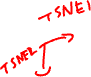 TSNE1
TSNE2